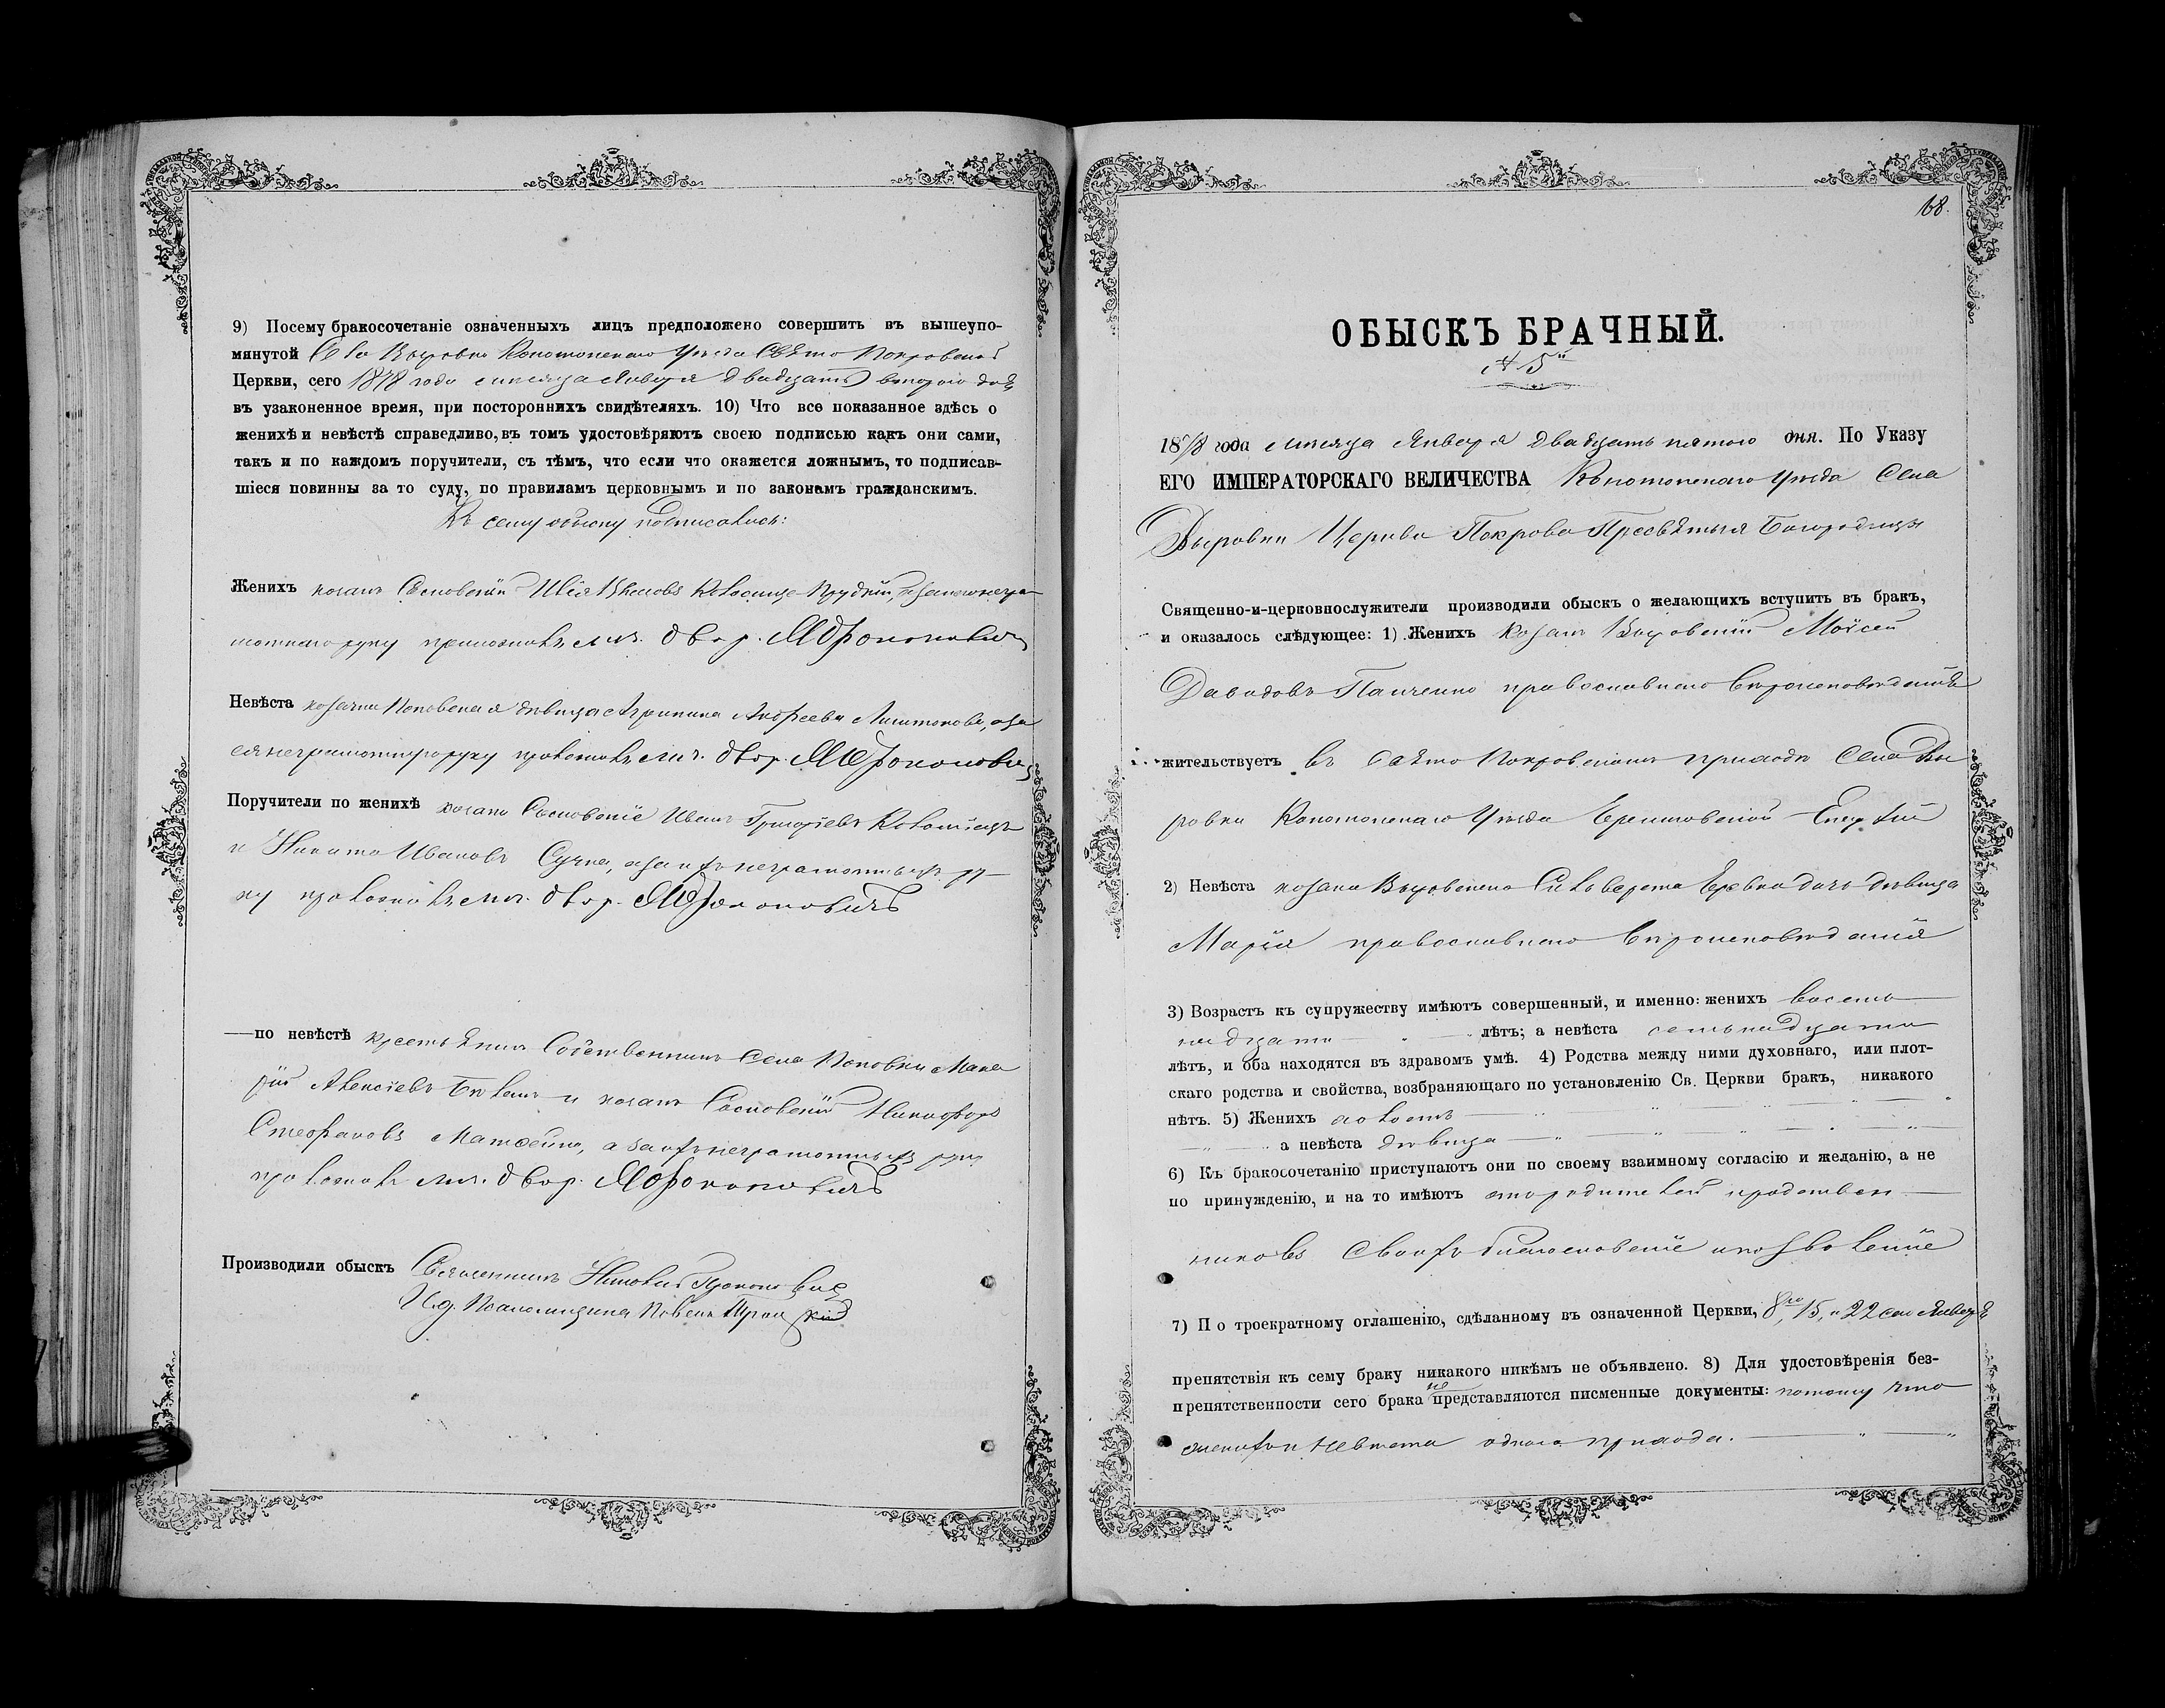 9) Посему бракосочетаніе означенныхъ лицъ предположено совершить въ вышеупо-
мянутой Села Выровки Конотопскаго Уѣзда Свято Покровской
Церкви, сего 1878 года мѣсяца Января двадцать второго дня
въ узаконенное время, при постороннихъ свидѣтеляхъ. 10) Что все показанное здѣсь о
женихѣ и невѣстѣ справедливо, въ томъ удостовѣряютъ своею подписью какъ они сами,
такъ и по каждомъ поручители, съ тѣмъ, что если что окажется ложнымъ, то подписав-
шіеся повинны за то суду, по правиламъ церковнымъ и по законамъ гражданскимъ.
Къ сему обыску подписались:
Женихъ козакъ Сосновскій Илія
руку приложилъ двор.
Невѣста дѣвица Агрипина Андреева
двор.
Поручители по женихѣ козаки Сосновскіе Иванъ Григоріевъ Коломіецъ
и Никита Ивановъ Сучка, а за ихъ неграмотныхъ ру-
ку приложилъ двор.
—по невѣстѣ крестьянинъ Собственникъ Села Поповки Мака
рій Алексіевъ и козакъ Сосновскій Никифоръ
Стефановъ а за ихъ неграмотныхъ руку
приложилъ двор.
Производили обыскъ Священникъ
И.д. Псаломщика Павелъ
168.
ОБЫСКЪ БРАЧНЫЙ.
№ 5й
1878 года мѣсяца Января двадцать пятого дня. По Указу
ЕГО ИМПЕРАТОРСКАГО ВЕЛИЧЕСТВА Конотопскаго Уѣзда Села
Выровки Церкви Покрова Пресвятыя Богородицы
Священно-и-церковнослужители производили обыскъ о желающихъ вступить въ бракъ,
и оказалось слѣдующее: 1) Женихъ Козакъ Выровскій Моисей
Давидовъ Панченко православнаго вѣроисповѣданія
жительствуетъ въ Свято Покровскомъ приходѣ Села Вы
ровки Конотопскаго Уѣзда Черниговской Епархіи
2) Невѣста козака Выровскаго Сильвестра дочь дѣвица
Марія православнаго вѣроисповѣданія
3) Возрастъ къ супружеству имѣютъ совершенный, и именно: женихъ восем-
надцати лѣтъ; а невѣста семьнадцати
лѣтъ, и оба находятся въ здравомъ умѣ. 4) Родства между ними духовнаго, или плот-
скаго родства и свойства, возбраняющаго по установленію Св. Церкви бракъ, никакого
нѣтъ. 5) Женихъ холостъ
а невѣста дѣвица
6) Къ бракосочетанію приступаютъ они по своему взаимному согласію и желанію, а не
по принужденію, и на то имѣютъ отъ родителей и родствен-
никовъ своихъ благословеніе и позволеніе
7) По троекратному оглашенію, сдѣланному въ означенной Церкви, 8го, 15, и 22 сего Января
препятствія къ сему браку никакого никѣмъ не объявлено. 8) Для удостовѣренія без-
препятственности сего брака не представляются писменные документы: потому что
женихъ и невѣста одного прихода.